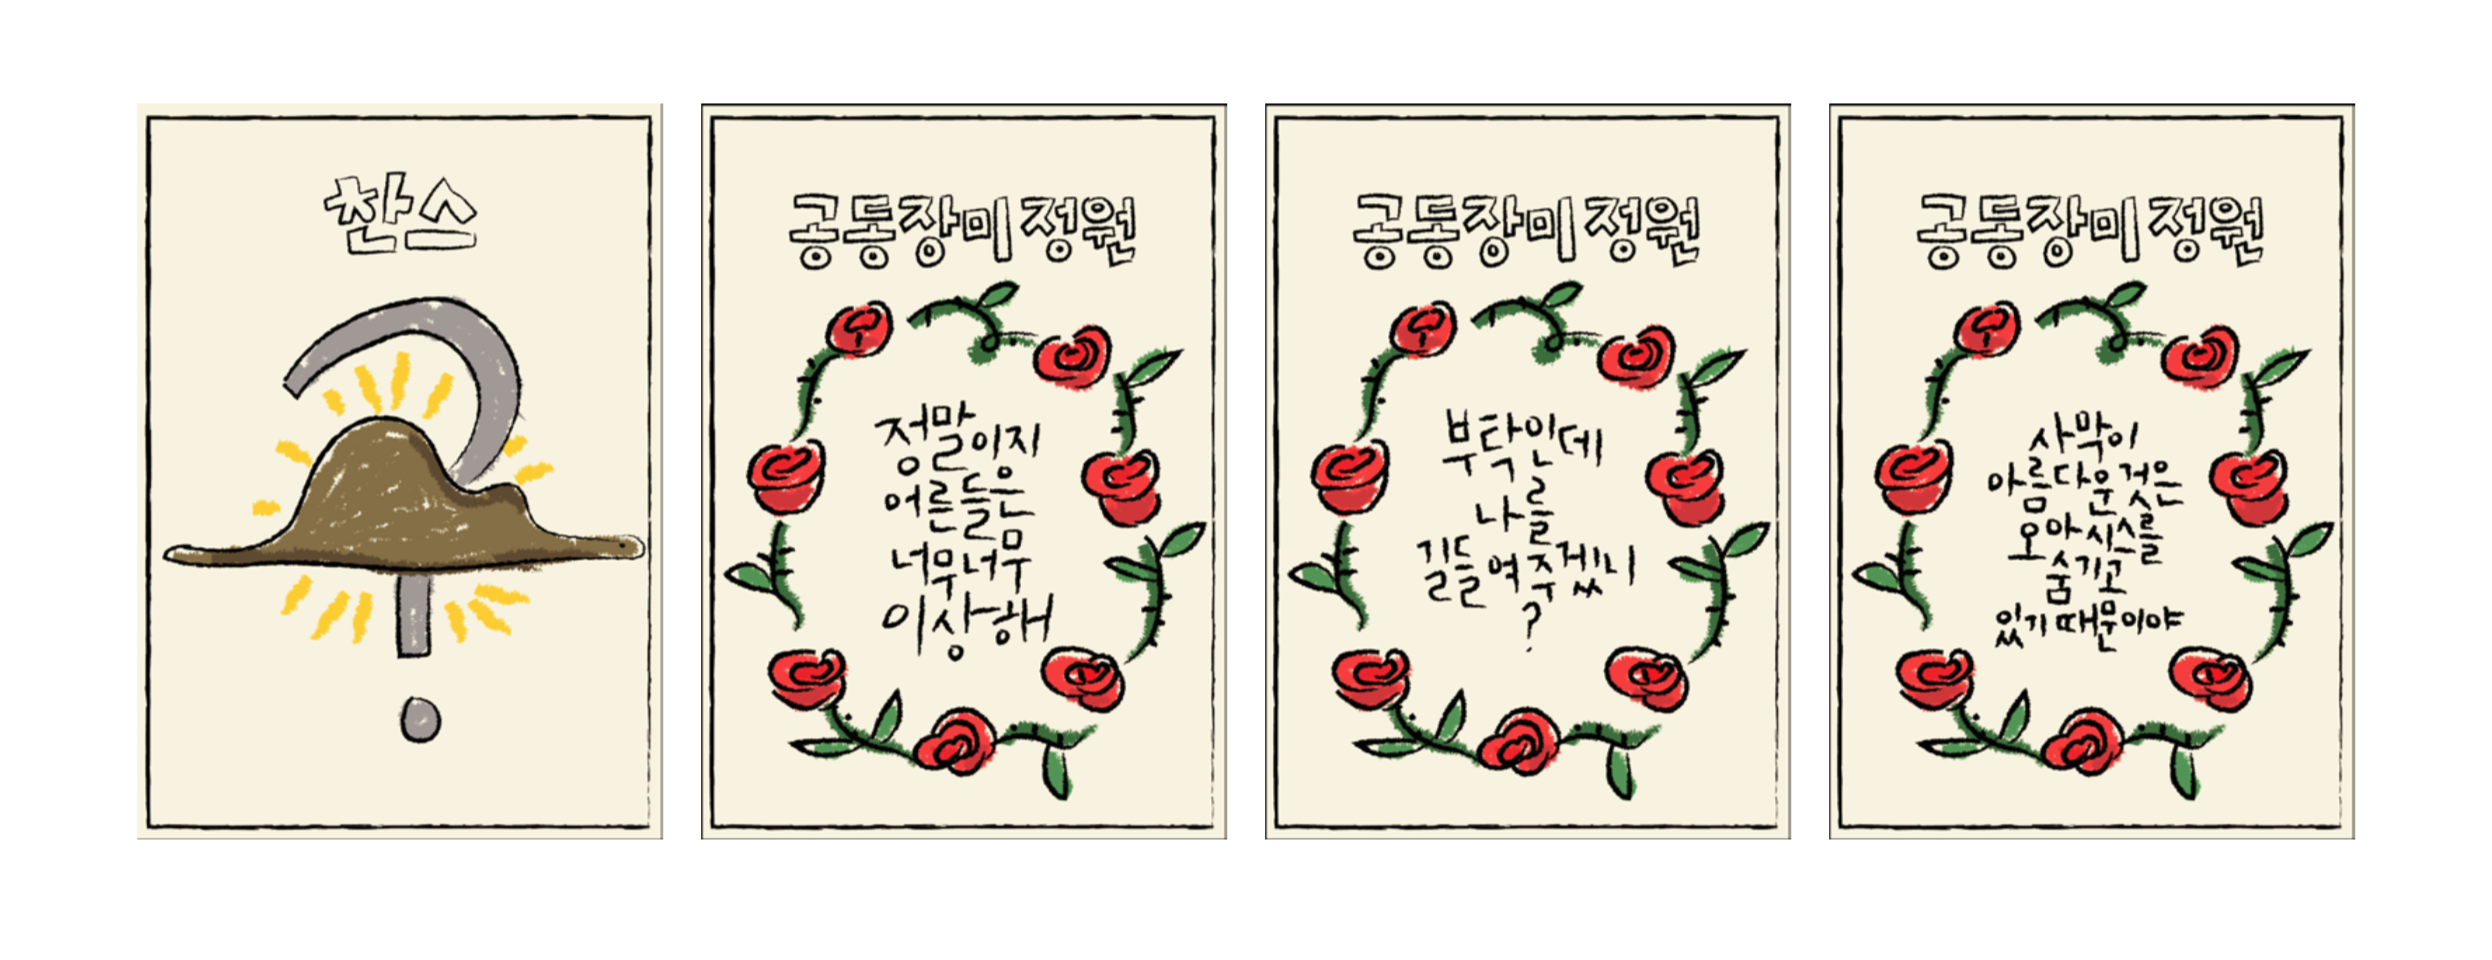 찬스
공동장미정원
정말이지
어른들은
너무너무
이상해
공동장미정원
부탁인데
나를
길들여주겠니
?
공동장미정원
사막이
아름다운것은
오아시스를
숨기고
있기때문이야